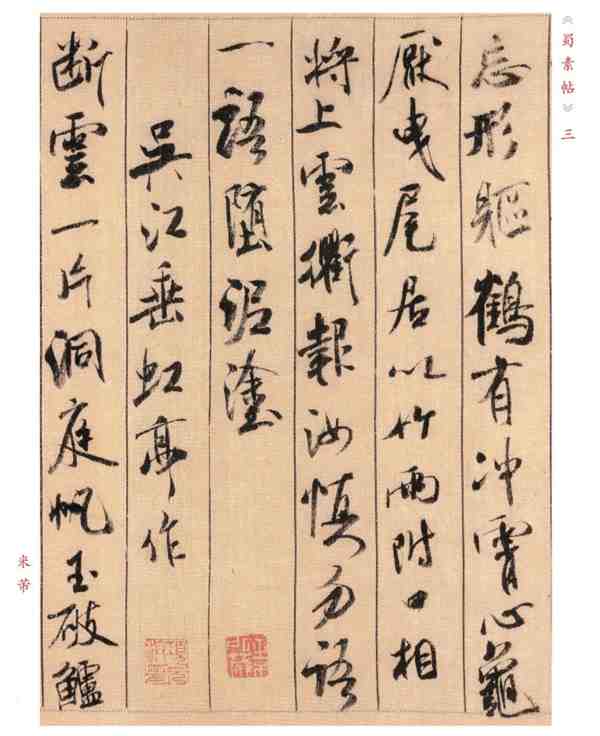 《蜀素帖》三
忘形軀鶴有冲霄心龜
厭曳尾居以竹兩附口相
將上雲衢報汝慎勿語
一語墮泥塗
吳江垂虹亭作
断雲一片洞庭帆玉破鱸
米芾